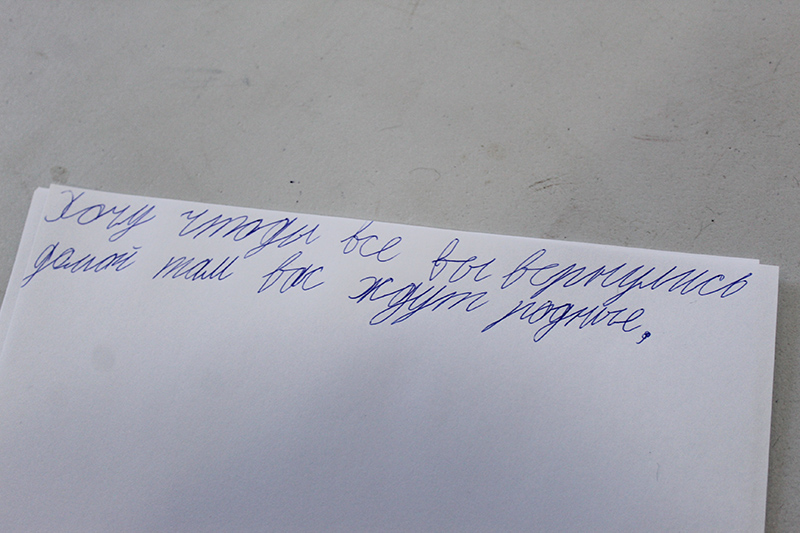 Хочу чтобы все вы вернулись
домой там вас ждут родные,